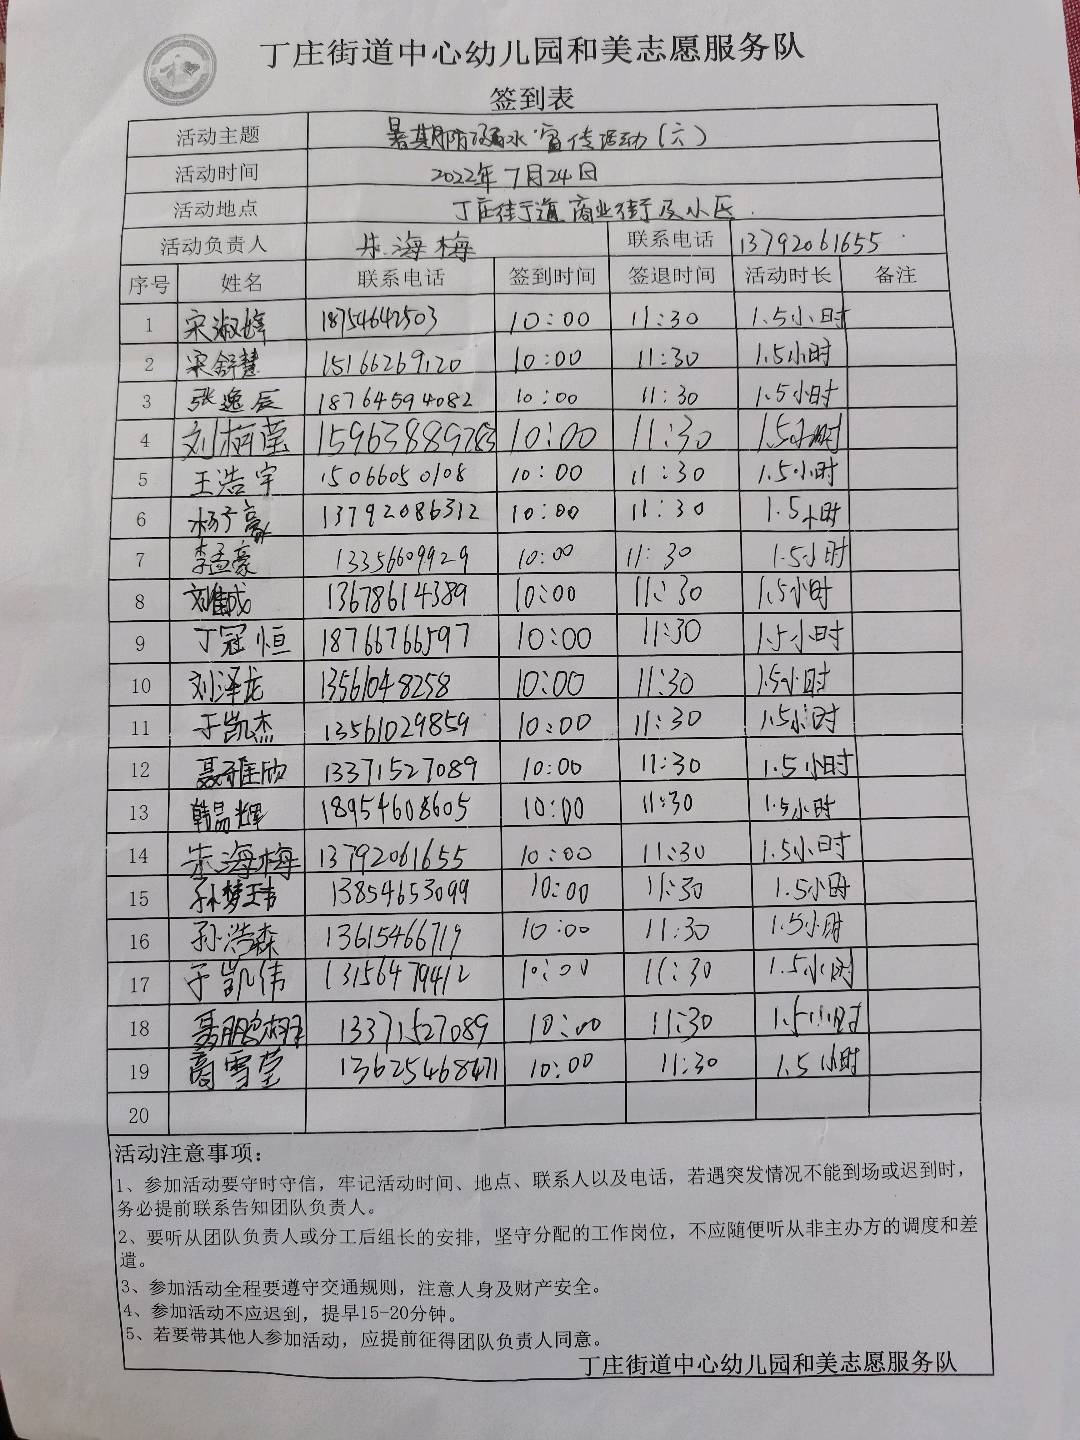 丁庄街道中心幼儿园和美志愿服务队
签到表
活动主题 暑期防溺水宣传活动(六)
活动时间 2022年7月24日
活动地点 丁庄街道商业街及小区.
活动负责人 朱海梅 联系电话 13792061655
序号 姓名 联系电话 签到时间 签退时间 活动时长 备注
1 宋淑婷 18754642503 10:00 11:30 1.5小时
2 宋舒慧 15166269120 10:00 11:30 1.5小时
3 张逸辰 18764594082 10:00 11:30 1.5小时
4 刘柄莹 15963889783 10:00 11:30 1.5小时
5 王浩宇 15066050108 10:00 11:30 1.5小时
6 杨子豪 13792086312 10:00 11:30 1.5小时
7 李孟豪 13356609929 10:00 11:30 1.5小时
8 13678614389 10:00 11:30 1.5小时
9 丁冠恒 18766766597 10:00 11:30 1.5小时
10 刘泽龙 13561048258 10:00 11:30 1.5小时
11 于凯杰 13561029859 10:00 11:30 1.5小时
12 聂雅欣 13371527089 10:00 11:30 1.5小时
13 韩昌辉 18954608605 10:00 11:30 1.5小时
14 朱海梅 13792061655 10:00 11:30 1.5小时
15 孙梦玮 13854653099 10:00 11:30 1.5小时
16 孙浩森 13615466719 10:00 11:30 1.5小时
17 于凯伟 13156479412 10:00 11:30 1.5小时
18 13371527089 10:00 11:30 1.5小时
19 商雪莹 13625468471 10:00 11:30 1.5小时
20
活动注意事项：
1、参加活动要守时守信，牢记活动时间、地点、联系人以及电话，若遇突发情况不能到场或迟到时，
务必提前联系告知团队负责人。
2、要听从团队负责人或分工后组长的安排，坚守分配的工作岗位，不应随便听从非主办方的调度和差
遣。
3、参加活动全程要遵守交通规则，注意人身及财产安全。
4、参加活动不应迟到，提早15-20分钟。
5、若要带其他人参加活动，应提前征得团队负责人同意。
丁庄街道中心幼儿园和美志愿服务队